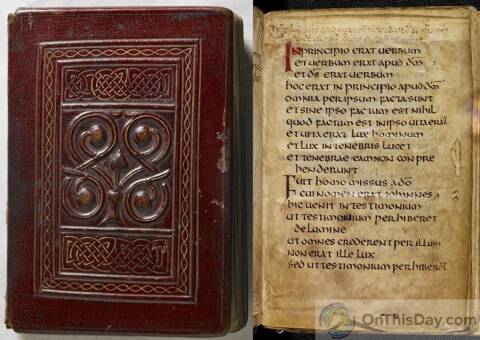 IN PRINCIPIO ERAT UERBUM
ET UERBUM ERAT APUD DM̄
ET DS̄ ERAT UERBUM
HOC ERAT IN PRINCIPIO APUD DM̄
OMNIA PER IPSUM FACTA SUNT
ET SINE IPSO FACTUM EST NIHIL
QUOD FACTUM EST IN IPSO UITA ERAT
ET UITA ERAT LUX HOMINUM
ET LUX IN TENEBRIS LUCET
ET TENEBRAE EAM NON CONPRE
HENDERUNT
FUIT HOMO MISSUS A DŌ
CUI NOMEN ERAT IOHANNES
HIC UENIT IN TESTIMONIUM
UT TESTIMONIUM PERHIBERET
DE LUMINE
UT OMNES CREDERENT PER ILLUM
NON ERAT ILLE LUX
SED UT TESTIMONIUM PERHIBERET
OnThisDay.com